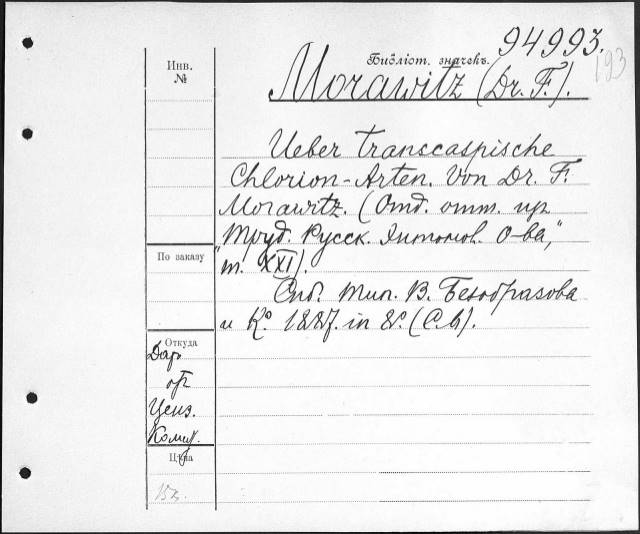 94993.
193
Инв.
№
Библіот. значекъ.
Morawitz (Dr. F.).
Ueber transcaspische
Chlorion-Arten. Von Dr. F.
Morawitz. (Отд. отт. изъ
"Труд. Русск. Энтомол. О-ва,"
т. XXI).
Спб. Тип. В. Безобразова
и Ко. 1887. in 8º. (С.б).
По заказу
Откуда
Даръ
отъ
Ценз.
Комит.
Цѣна
15к.